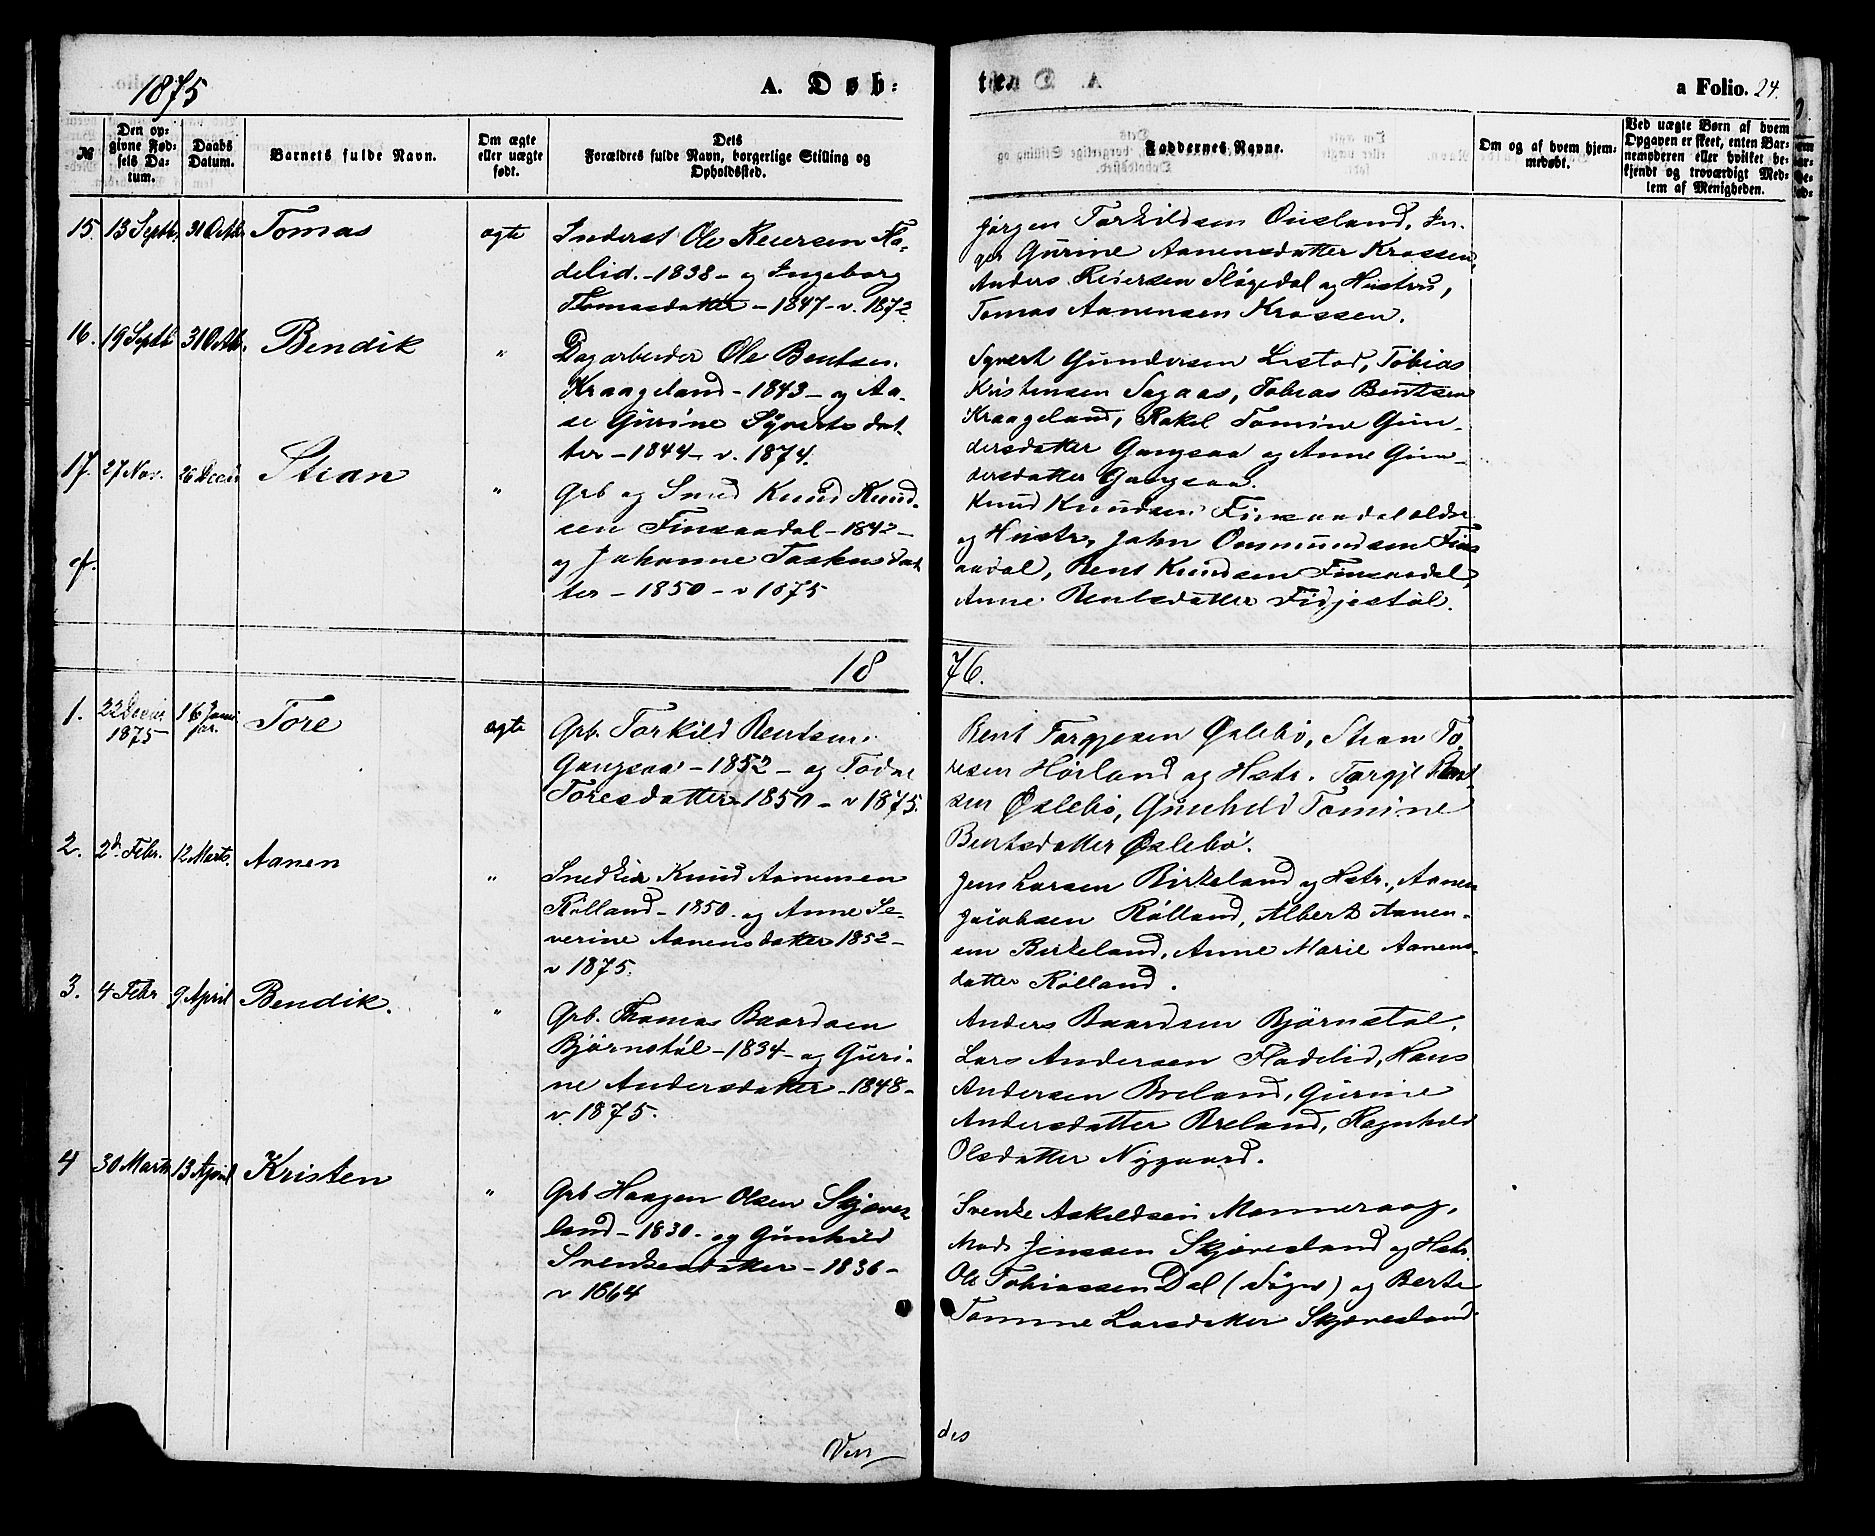 1875
A. Døb:
te.
a Folio. 24.
№
Den op=
givne Fød=
sels Da=
tum.
Daabs
Datum.
Barnets fulde Navn.
Om ægte
eller uægte
født.
Dets
Forældres fulde Navn, borgerlige Stilling og
Opholdssted.
Faddernes Navne.
Om og af hvem hjem=
medøbt.
Ved uægte Børn af hvem
Opgaven er skeet, enten Bar=
nemoderen eller hvilket be=
kjendt og troværdigt Med=
lem af Menigheden.
15. 13 Septb. 31 Octb. Tomas ægte
Inderst Ole Reiersen Fla-
delid. - 1838 - og Ingeborg
Tomasdatter - 1847 - v. 1872
Jørgen Torkildsen Ousland, In-
ger Gurine Aanensdatter Krossen,
Anders Reiersen Sløgedal og Hustru,
Tomas Aanensen Krossen.
16. 19 Septb 31 Octb. Bendik "
Dagarbeider Ole Bentsen
Kraageland - 1843 - og Aa-
se Gurine Syvertsdat-
ter - 1844 - v. 1874.
Syvert Gundersen Lestad, Tobias
Kristensen Sagaas, Tobias Bentsen
Kraageland, Rakel Tomine Gun-
dersdatter Gangsaa og Anne Gun-
dersdatter Gangsaa.
17. 27 Nov. 26 Decbr Stian "
Grb og Smed Knud Knud-
sen Finsaadal - 1842 -
og Johanne Taskensdat
ter - 1850 - v 1875
Knud Knudsen Finsaadal ældre
og Hustr, John Omundsen Fins
aadal, Bent Knudsen Finsaadal,
Anne Bentsdatter Fidjestøl.
18 76.
1. 22 Decbr. 1875 16 Janu
ar. Tore ægte
Grb. Torkild Bentsen
Gangsaa - 1852 - og Todne
Toresdatter - 1850 - v 1875.
Bent Torgjesen Øslebø, Stian To
resen Hørland og Hstr. Torgje Bent
sen Øslebø, Gunhild Tomine
Bentsdatter Øslebø.
2. 2d Febr. 12 Marts. Aanen "
Snedker Knud Aanensen
Rølland - 1850. og Anne Se-
verine Aanensdatter 1852 -
v 1875.
Jens Larsen Birkeland og Hstr., Aanen
Jacobsen Rølland, Albert Aanen-
sen Birkeland, Anne Marie Aanens-
datter Rølland.
3. 4 Febr 9 April Bendik. "
Grb. Thomas Baardsen
Bjørnstøl - 1834 - og Guri-
ne Andersdatter - 1848 -
v. 1875.
Anders Baardsen Bjørnstøl,
Lars Andersen Fladelid, Hans
Andersen Breland, Gurine
Andersdatter Breland, Ragnhild
Olsdatter Nygaard.
4 30 Marts 13 April Kristen "
Grb Haagen Olsen Skjæves
land - 1830. og Gunhild
Svenkesdatter - 1836 -
v 1864
Svenke Askildsen Monneraag,
Mads Jensen Skjævesland og Hstr.
Ole Tobiassen Dal (Søgne) og Berte
Tomine Larsdatter Skjævesland
Ven
des